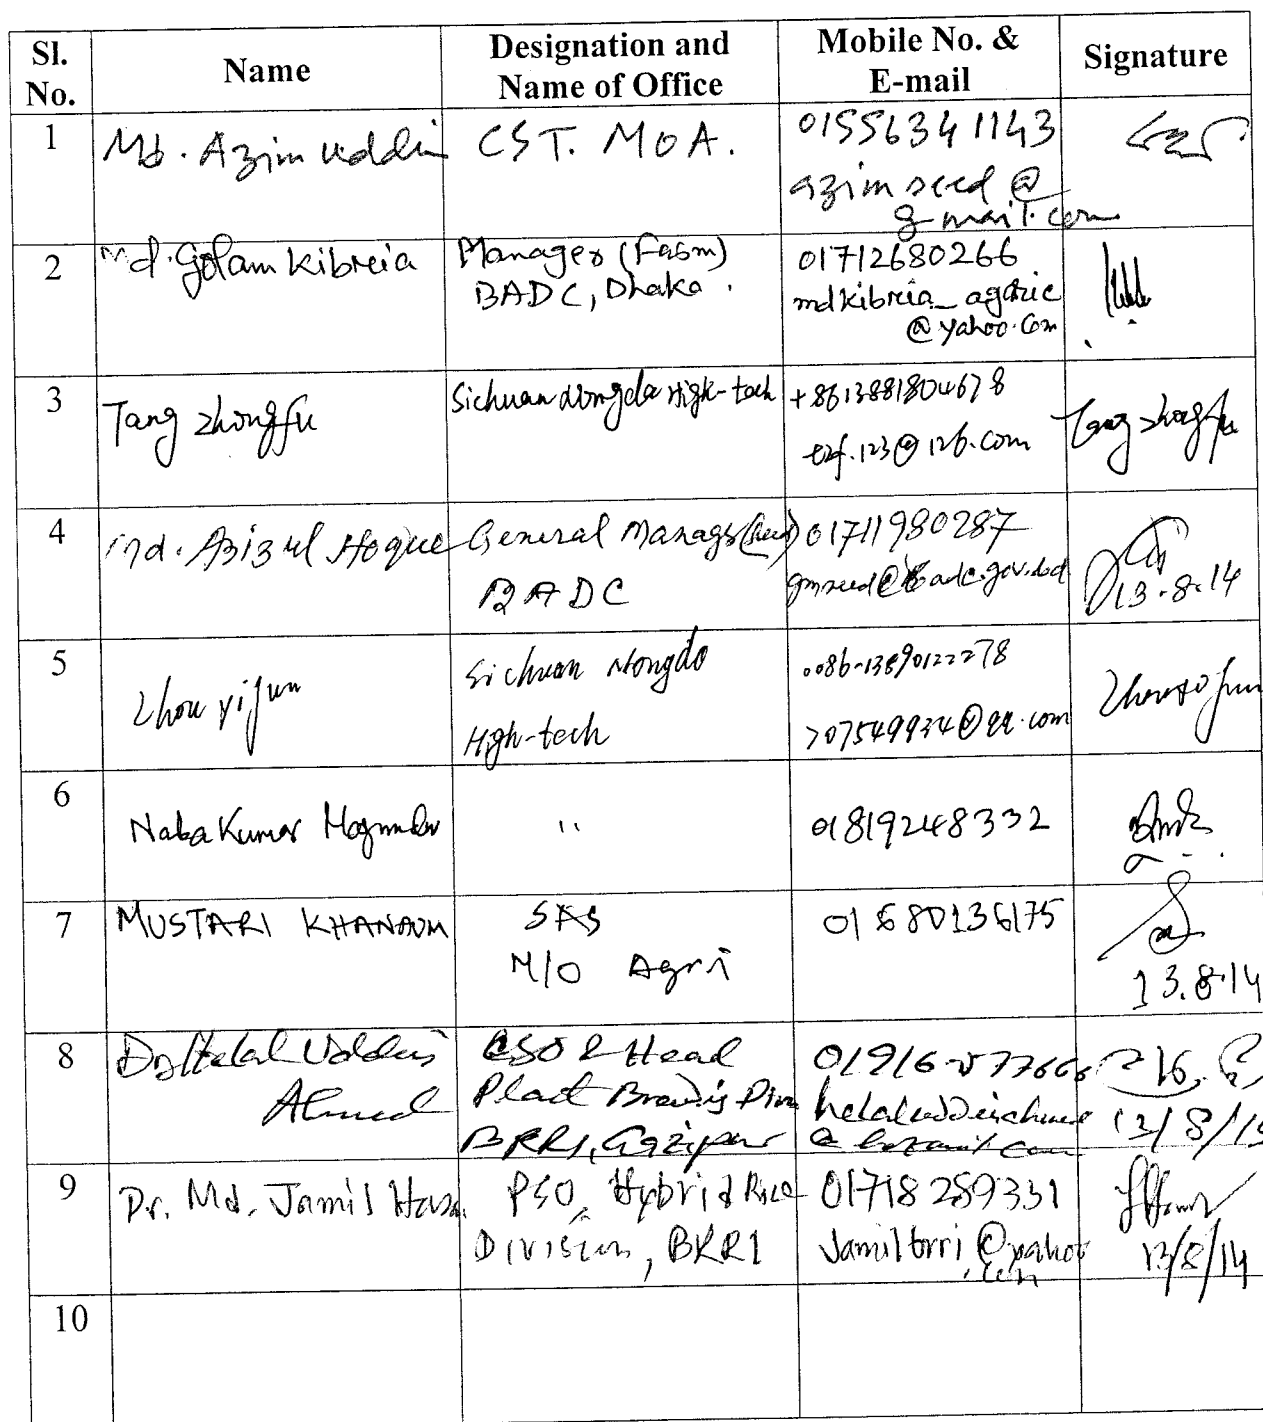 Sl. No.
Name
Designation and Name of Office
Mobile No. & E-mail
Signature
1
Md. Azim uddin
CST. MOA.
01556341143
azimseed@
gmail.com
2
Md. Golam Kibreia
Manager (Farm)
BADC, Dhaka.
01712680266
mdkibreia_agaric
@yahoo.com
3
Tang zhongfu
Sichuan Nongda High-tech
+8613881804678
tzf.123@126.com
Tang zhongfu
4
Md. Azizul Hoque
General Manager (Seed)
BADC
01711980287
gmseed@badc.gov.bd
13.8.14
5
Zhou yijun
Sichuan Nongda
High-tech
0086-13890122278
707549934@qq.com
Zhou yijun
6
Naba Kumar
"
01819248332
7
MUSTARI KHANAUM
SAS
M/O Agri
01680136175
13.8.14
8
Dr. Helal Uddin
Ahmed
CSO & Head
Plant Breeding Divn
BRRI, Gazipur
01916
helaluddinahmed
13/8/14
9
Dr. Md. Jamil Hasan
PSO, Hybrid Rice
Division, BRRI
01718289331
Jamilbrri@yahoo
.com
13/8/14
10